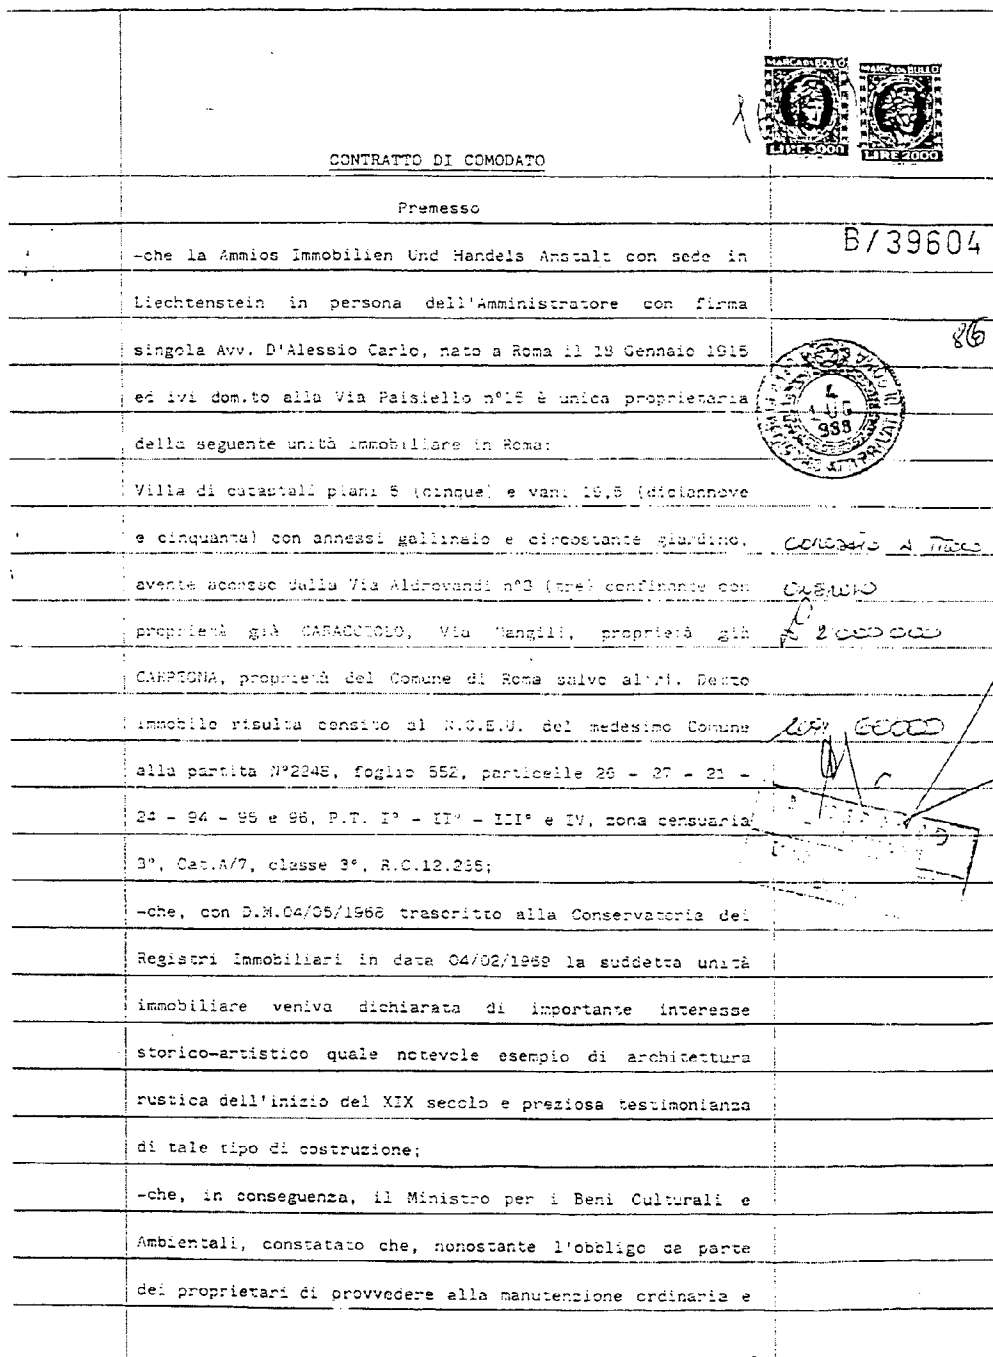 MARCA DA BOLLO
LIRE 3000
MARCA DA BOLLO
LIRE 2000
CONTRATTO DI COMODATO
Premesso
B/39604
-che la Ammios Immobilien Und Handels Anstalt con sede in
Liechtenstein in persona dell'Amministratore con firma
singola Avv. D'Alessio Carlo, nato a Roma il 19 Gennaio 1915
ed ivi dom.to alla Via Paisiello n°15 è unica proprietaria
della seguente unità immobiliare in Roma:
Villa di catastali piani 5 (cinque) e vani 19,5 (diciannove
e cinquanta) con annessi gallinaio e circostante giardino,
avente accesso dalla Via Aldrovandi n°3 (tre) confinante con
proprietà già CARACCIOLO, Via Mangili, proprietà già
CARPEGNA, proprietà del Comune di Roma salvo altri. Detto
immobile risulta censito al N.C.E.U. del medesimo Comune
alla partita N°2248, foglio 552, particelle 26 - 27 - 21 -
24 - 94 - 95 e 96, P.T. I° - II° - III° e IV, zona censuaria
3°, Cat.A/7, classe 3°, R.C.12.295;
-che, con D.M.04/05/1968 trascritto alla Conservatoria dei
Registri Immobiliari in data 04/02/1969 la suddetta unità
immobiliare veniva dichiarata di importante interesse
storico-artistico quale notevole esempio di architettura
rustica dell'inizio del XIX secolo e preziosa testimonianza
di tale tipo di costruzione;
-che, in conseguenza, il Ministro per i Beni Culturali e
Ambientali, constatato che, nonostante l'obbligo da parte
dei proprietari di provvedere alla manutenzione ordinaria e
86
£ 2000000